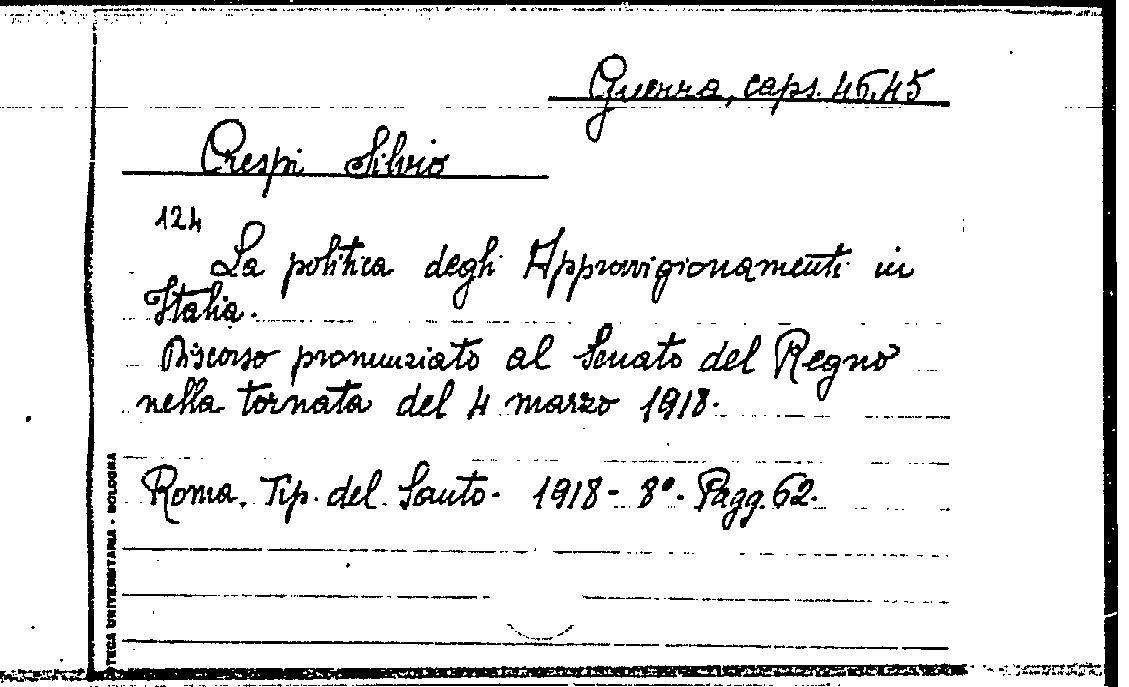 Guerra, caps. 46.45
Crespi Silvio
124
La politica degli Approvvigionamenti in
Italia.
Discorso pronunziato al Senato del Regno
nella tornata del 4 marzo 1918.
Roma. Tip. del Santo. 1918 - 8°. Pagg. 62.
OTECA UNIVERSITARIA - BOLOGNA